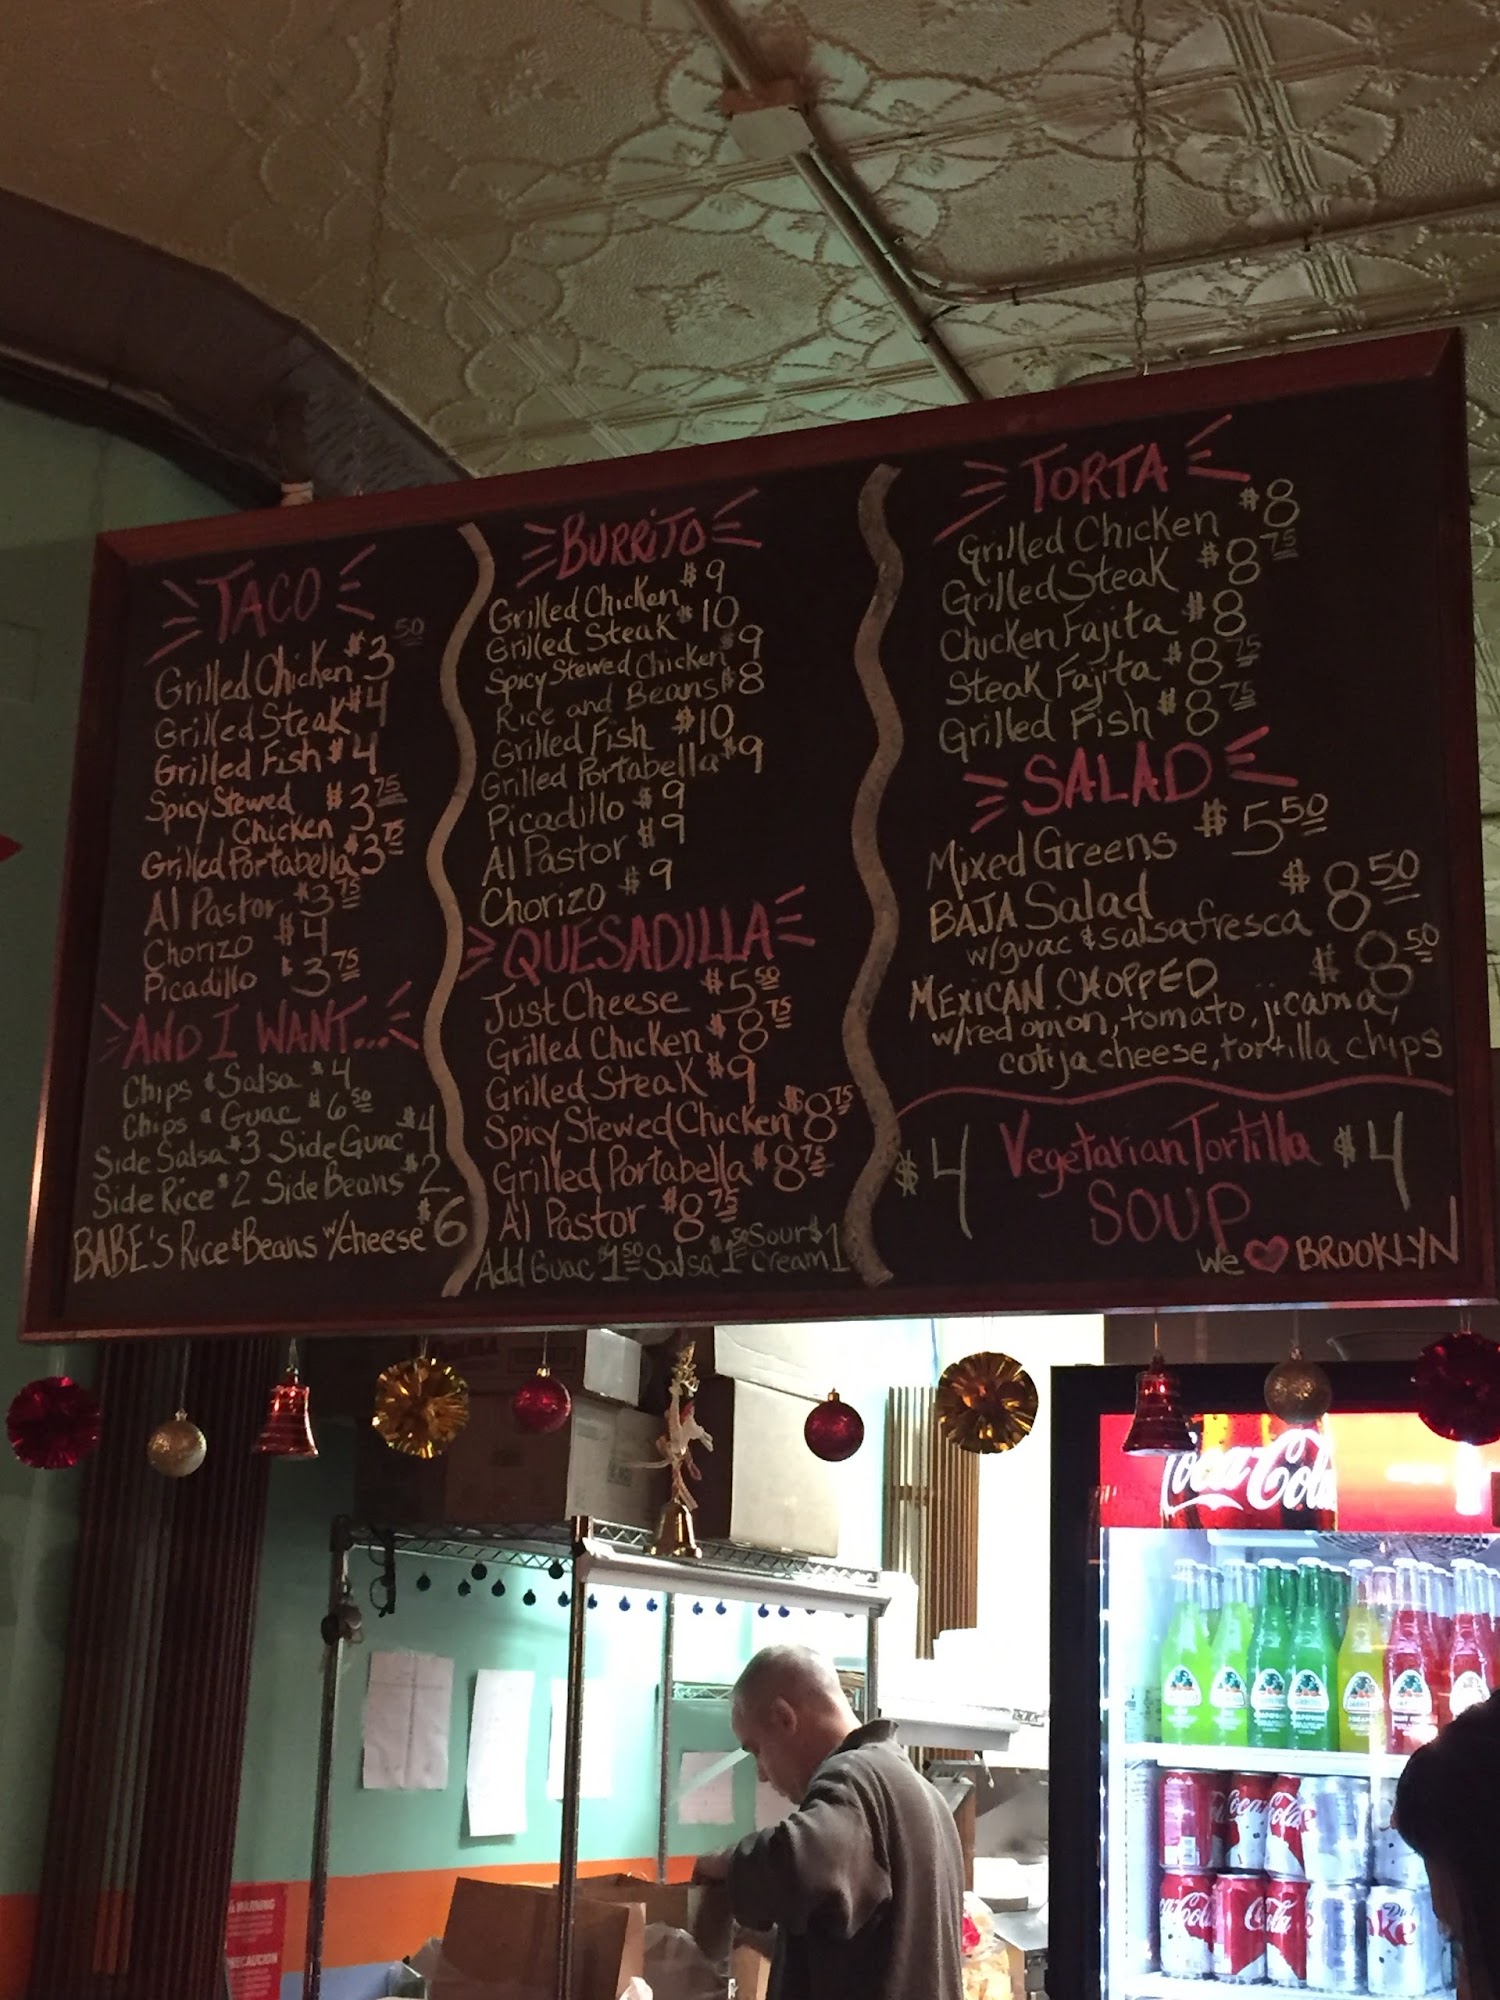 TACO
Grilled Chicken $3.50
Grilled Steak $4
Grilled Fish $4
Spicy Stewed
Chicken $3.75
Grilled Portabella $3.75
Al Pastor $3.75
Chorizo $4
Picadillo $3.75
AND I WANT...
Chips & Salsa $4
Chips & Guac $6.50
Side Salsa $3 Side Guac $4
Side Rice $2 Side Beans $2
BABE'S Rice & Beans w/cheese $6
BURRITO
Grilled Chicken $9
Grilled Steak $10
Spicy Stewed Chicken $9
Rice and Beans $8
Grilled Fish $10
Grilled Portabella $9
Picadillo $9
Al Pastor $9
Chorizo $9
QUESADILLA
Just Cheese $5.50
Grilled Chicken $8.75
Grilled Steak $9
Spicy Stewed Chicken $8.75
Grilled Portabella $8.75
Al Pastor $8.75
Add Guac $1.50 Salsa $1.50 Sour Cream $1
TORTA
Grilled Chicken $8
Grilled Steak $8.75
Chicken Fajita $8
Steak Fajita $8.75
Grilled Fish $8.75
SALAD
Mixed Greens $5.50
BAJA Salad $8.50
w/guac & salsa fresca
MEXICAN CHOPPED $8.50
w/red onion, tomato, jicama,
cotija cheese, tortilla chips
$4 Vegetarian Tortilla $4
SOUP
We ♥ BROOKLYN
Coca-Cola
WARNING
PRECAUCION
Coca-Cola
Coca-Cola
Diet Coke